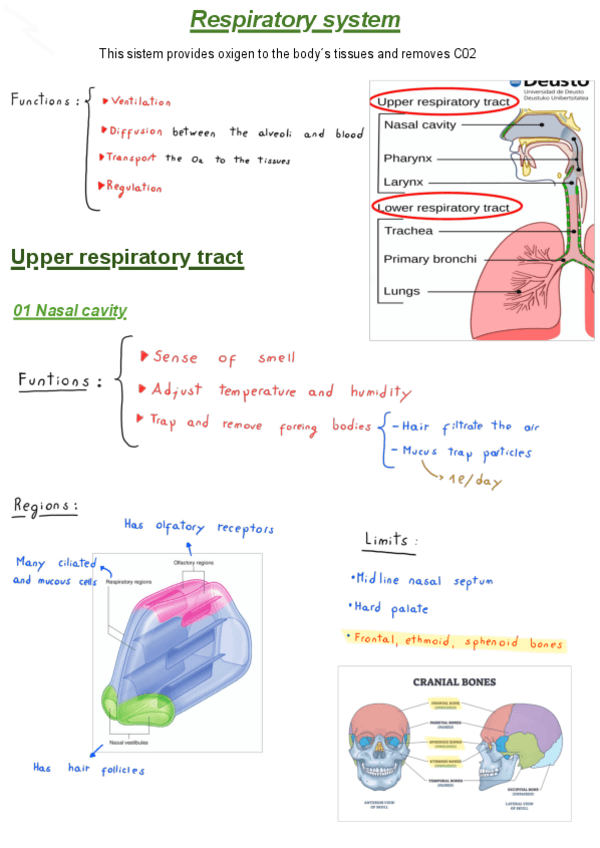 Respiratory system
This sistem provides oxigen to the body´s tissues and removes C02
Functions : 
▸ Ventilation
▸ Diffusion between the alveoli and blood
▸ Transport the O₂ to the tissues
▸ Regulation
Deusto
Universidad de Deusto
Deustuko Unibertsitatea
Upper respiratory tract
Nasal cavity
Pharynx
Larynx
Lower respiratory tract
Trachea
Primary bronchi
Lungs
Upper respiratory tract
01 Nasal cavity
Funtions :
▸ Sense of smell
▸ Adjust temperature and humidity
▸ Trap and remove foreing bodies
- Hair filtrate the air
- Mucus trap particles
→ 1l/day
Regions :
Has olfatory receptors
Many ciliated
and mucous cells
Olfactory regions
Respiratory regions
Nasal vestibules
Has hair follicles
Limits :
• Midline nasal septum
• Hard palate
• Frontal, ethmoid, sphenoid bones
CRANIAL BONES
FRONTAL BONE
PARIETAL BONES
SPHENOID BONE
ETHMOID BONE
TEMPORAL BONES
OCCIPITAL BONE
ANTERIOR VIEW
OF SKULL
LATERAL VIEW
OF SKULL